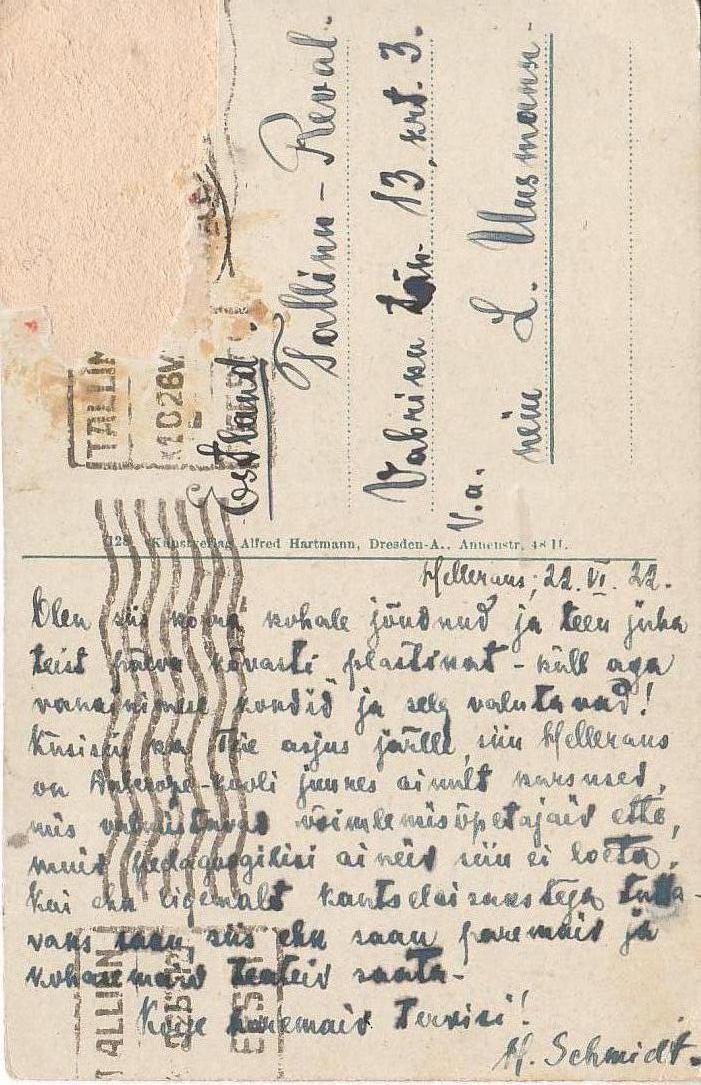 Estland.
Tallinn - Reval.
Vabriku tän. 13, krt. 3.
V.a.
neiu L. Uusmann
TALLINN
EESTI
Kunstverlag Alfred Hartmann, Dresden-A., Annenstr. 48 II.
Hellerau, 22. VI. 22.
Olen siis kohale jõudnud ja teen juba
teist päeva kõvasti plastikat - küll aga
vanainimese kondid ja selg valutavad!
Küsisin ka Teie asjus järele, siin Helleraus
on Dalcroze-kooli juures ainult kursused,
mis valmistavad võimlemisõpetajaid ette,
muid pedagoogilisi aineid siin ei loeta.
Kai ehk ligemalt kantselei sakstega tutta-
vaks saan, siis ehk saan paremaid ja
kohasemaid teateid saata -
Kõige paremaid tervisi!
H. Schmidt.